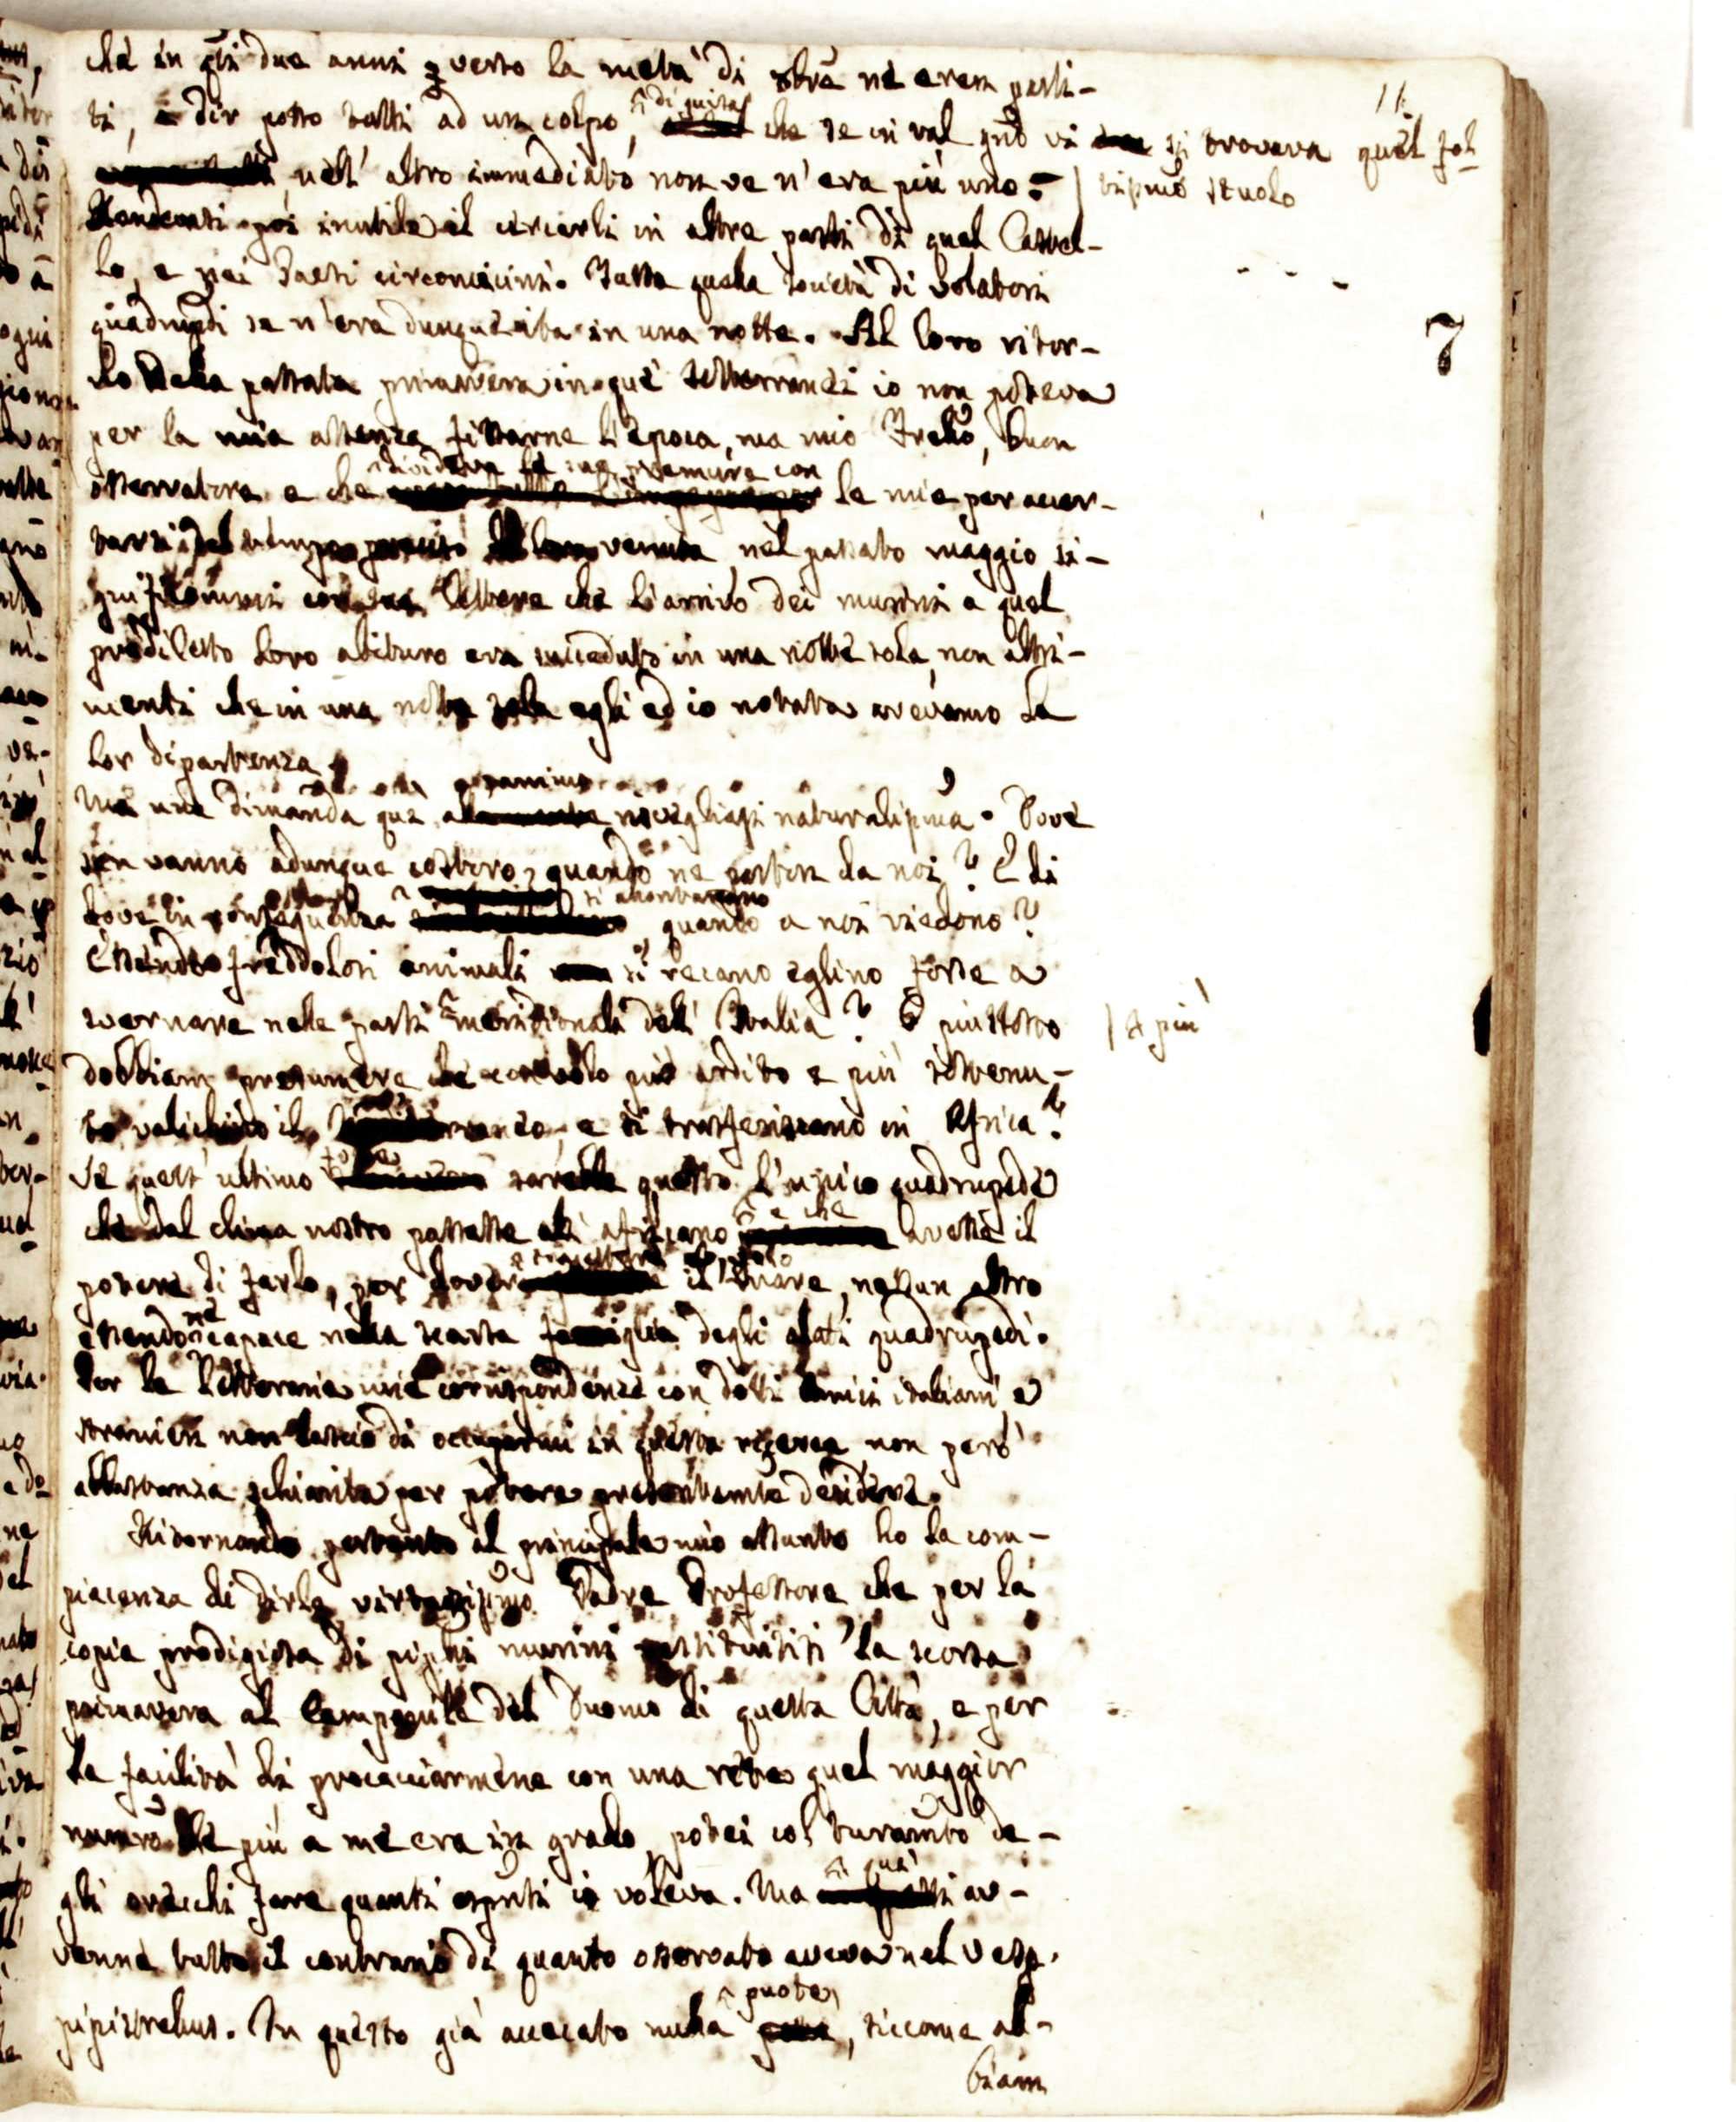 11.
chè in q.ti due anni verso la metà di 8bre ne eran parti-
ti, a dir posso tutti ad un colpo, di guisa che se in un tal gno vi si trovava quel fol
nell' altro immediato non ve n'era più uno. | tissimo stuolo
Rendeasi poi inutile il cercarli in altre parti di quel Castel-
lo, e nei Paesi circonvicini. Tutta quella società di volatori
7
quadrupedi se n'era dunque ita in una notte. Al loro ritor-
no della passata primavera in que' sotterranei io non poteva
per la mia assenza fissarne l'epoca, ma mio Frello, buon
osservatore e che divideva le sue premure con le mie per accer-
tarsi del tempo preciso venuta nel passato maggio si-
gnificommi con sue lettere che l'arrivo dei murini a quel
prediletto loro abituro era succeduto in una notte sola, non altri-
menti che in una notte sola egli ed io notata avevamo la
lor dipartenza.
Ma una dimanda qui risvegliasi naturalissima. Dove
sen vanno adunque costoro, quando ne parton da noi? E di
dove in conseguenza si allontanano quando a noi riedono?
Essendo freddolosi animali si recano eglino forse a
svernare nelle parti meridionali dell' Italia? O piuttosto | le più
dobbiam presumere che con volo più ardito e più sostenu-
to valichino il Mediterraneo, e si trasferiscano in Africa?
Se quest' ultimo fosse sarebbe questo l'unico quadrupede
che dal clima nostro passasse all' africano e che avesse il
potere di farlo, per dover il mare, nessun altro
essendone capace nella scarsa famiglia degli alati quadrupedi.
Per le letterarie mie corrispondenze con dotti Amici italiani e
stranieri non lascio di occuparmi in questa ricerca, non però
abbastanza schiarita per potere presentemte decidere.
Ritornando pertanto al principale mio assunto ho la com-
piacenza di dirle virtuosissimo Padre Professore che per la
copia prodigiosa di pipilli murini restituitisi la scorsa
primavera al Campanile del Duomo di questa Città, e per
la facilità di procacciarmene con una rete quel maggior
numero che più a me era in grado, potei col turamto de-
gli orecchi fare quanti espnti io voleva. Ma in quai av-
venne tutto il contrario di quanto osservato aveva nel Vesp.
pipistrellus. In questo già accecato nulla puote, siccome ab-
biam